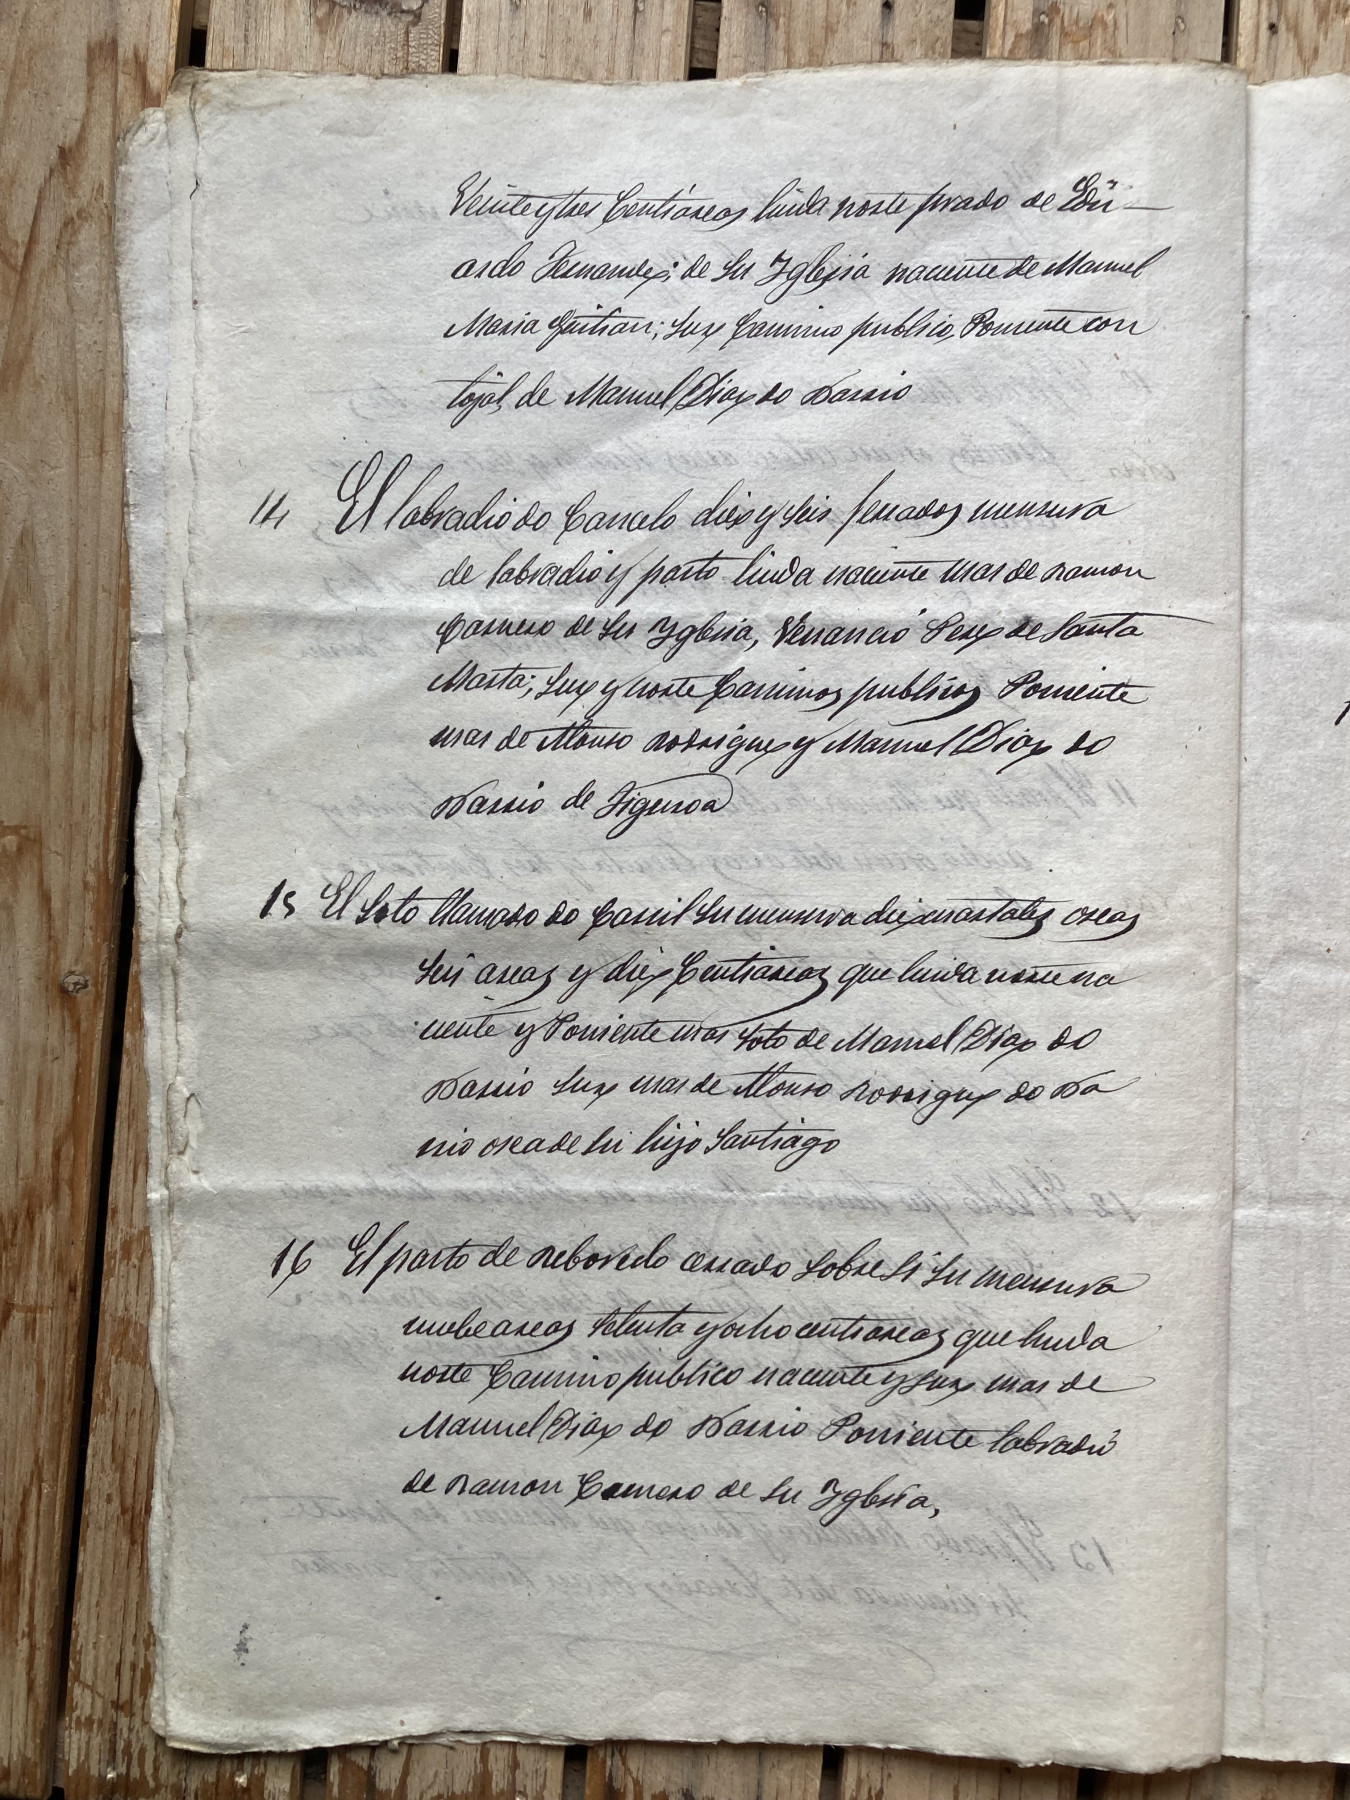 Veinteytres Centiareas linda norte prado de Edu-
ardo Fernandez; de Su Yglesia naciente de Manuel
Maria Guitian; Sur Camino publico, Poniente con
tojal, de Manuel Diaz do Barrio
14 El labradio do Cancelo diez y Seis ferrados mensura
de labradio y pasto linda naciente mas de Ramon
Carnero de Su Yglesia, Venancio Perez de Santa
Marta; Sur y norte Caminos publicos Poniente
mas de Alonso Rodriguez y Manuel Diaz do
Barrio de Figueroa
15 El Soto llamado do Carril Su mensura diez cuartales oseas
Seis areas y diez Centiareas que linda norte na
ciente y Poniente mas Soto de Manuel Diaz do
Barrio Sur mas de Alonso Rodriguez do Ba
rrio osea de Su hijo Santiago
16 El pasto de Reboredo cerrado Sobre Si Su mensura
nuebe areas Setenta y ocho centiareas que linda
norte Camino publico naciente y Sur mas de
Manuel Diaz do Barrio Poniente labradio
de Ramon Carnero de Su Yglesia,